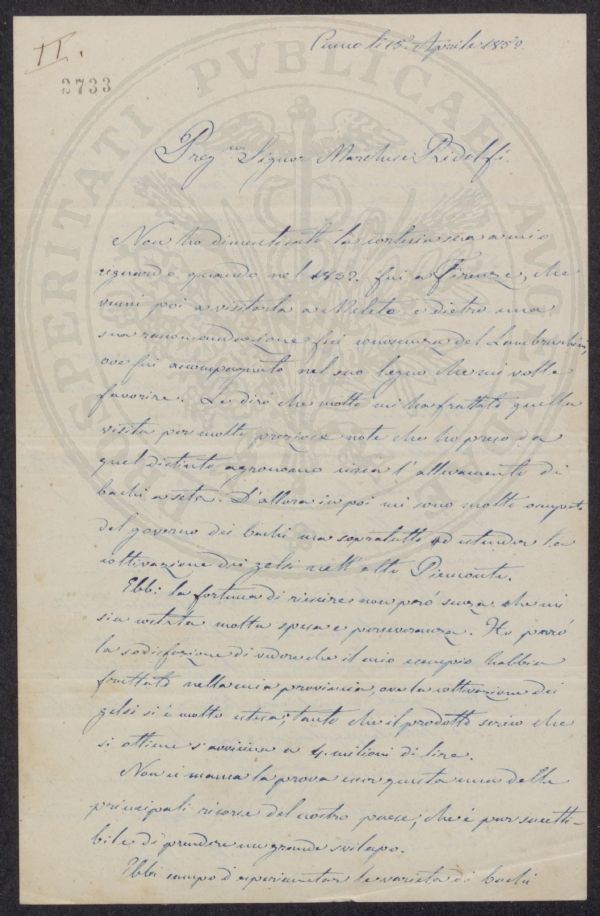 II.
Cuneo li 15 Aprile 1859.
3733
PROSPERITATI PVBLICAE AVGENDAE
Preg.mo Signor Marchese Ridolfi.
Non ho dimenticato la cortesia sua a mio
riguardo quando nel 1839. fui a Firenze, che
venni poi a visitarla a Meleto e dietro una
sua raccomandazione fui conoscenza del Lambruschini,
ove fui acompagnato nel suo legno che mi volle
favorire. Le dirò che molto mi ha fruttato quella
visita per molte preziose note che ho preso da
quel distinto agronomo circa l'allevamento di
bachi a seta. D'allora in poi mi sono molto occupato
del governo dei bachi ma sopratutto ad estender la
coltivazione dei gelsi nell'alto Piemonte.
Ebbi la fortuna di riescire non però senza che mi
sia costata molta spesa e perseveranza. Ho però
la sodisfazione di vedere che il mio esempio habbia
fruttato nella mia provincia, ove la coltivazione dei
gelsi si è molto estesa; tanto che il prodotto serico che
si ottiene s'avvicina a 4. milioni di lire.
Non ci manca la prova esser questa una delle
principali risorse del nostro paese; che è pur suscetti-
bile di prendere un grande svilupo.
Ebbi campo d'esperimentar le varietà di bachi